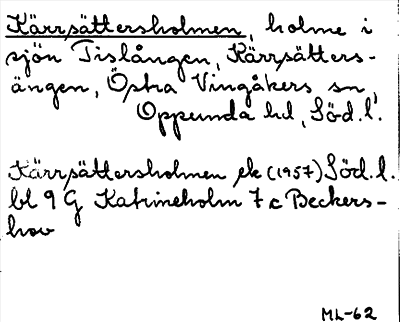 Kärrsättersholmen, holme i
sjön Tislången, Kärrsätters-
ängen, Östra Vingåkers sn,
Oppunda hd, Söd. l.
Kärrsättersholmen ek (1957) Söd. l.
bl 9 G Katrineholm 7 c Beckers-
hov
ML-62